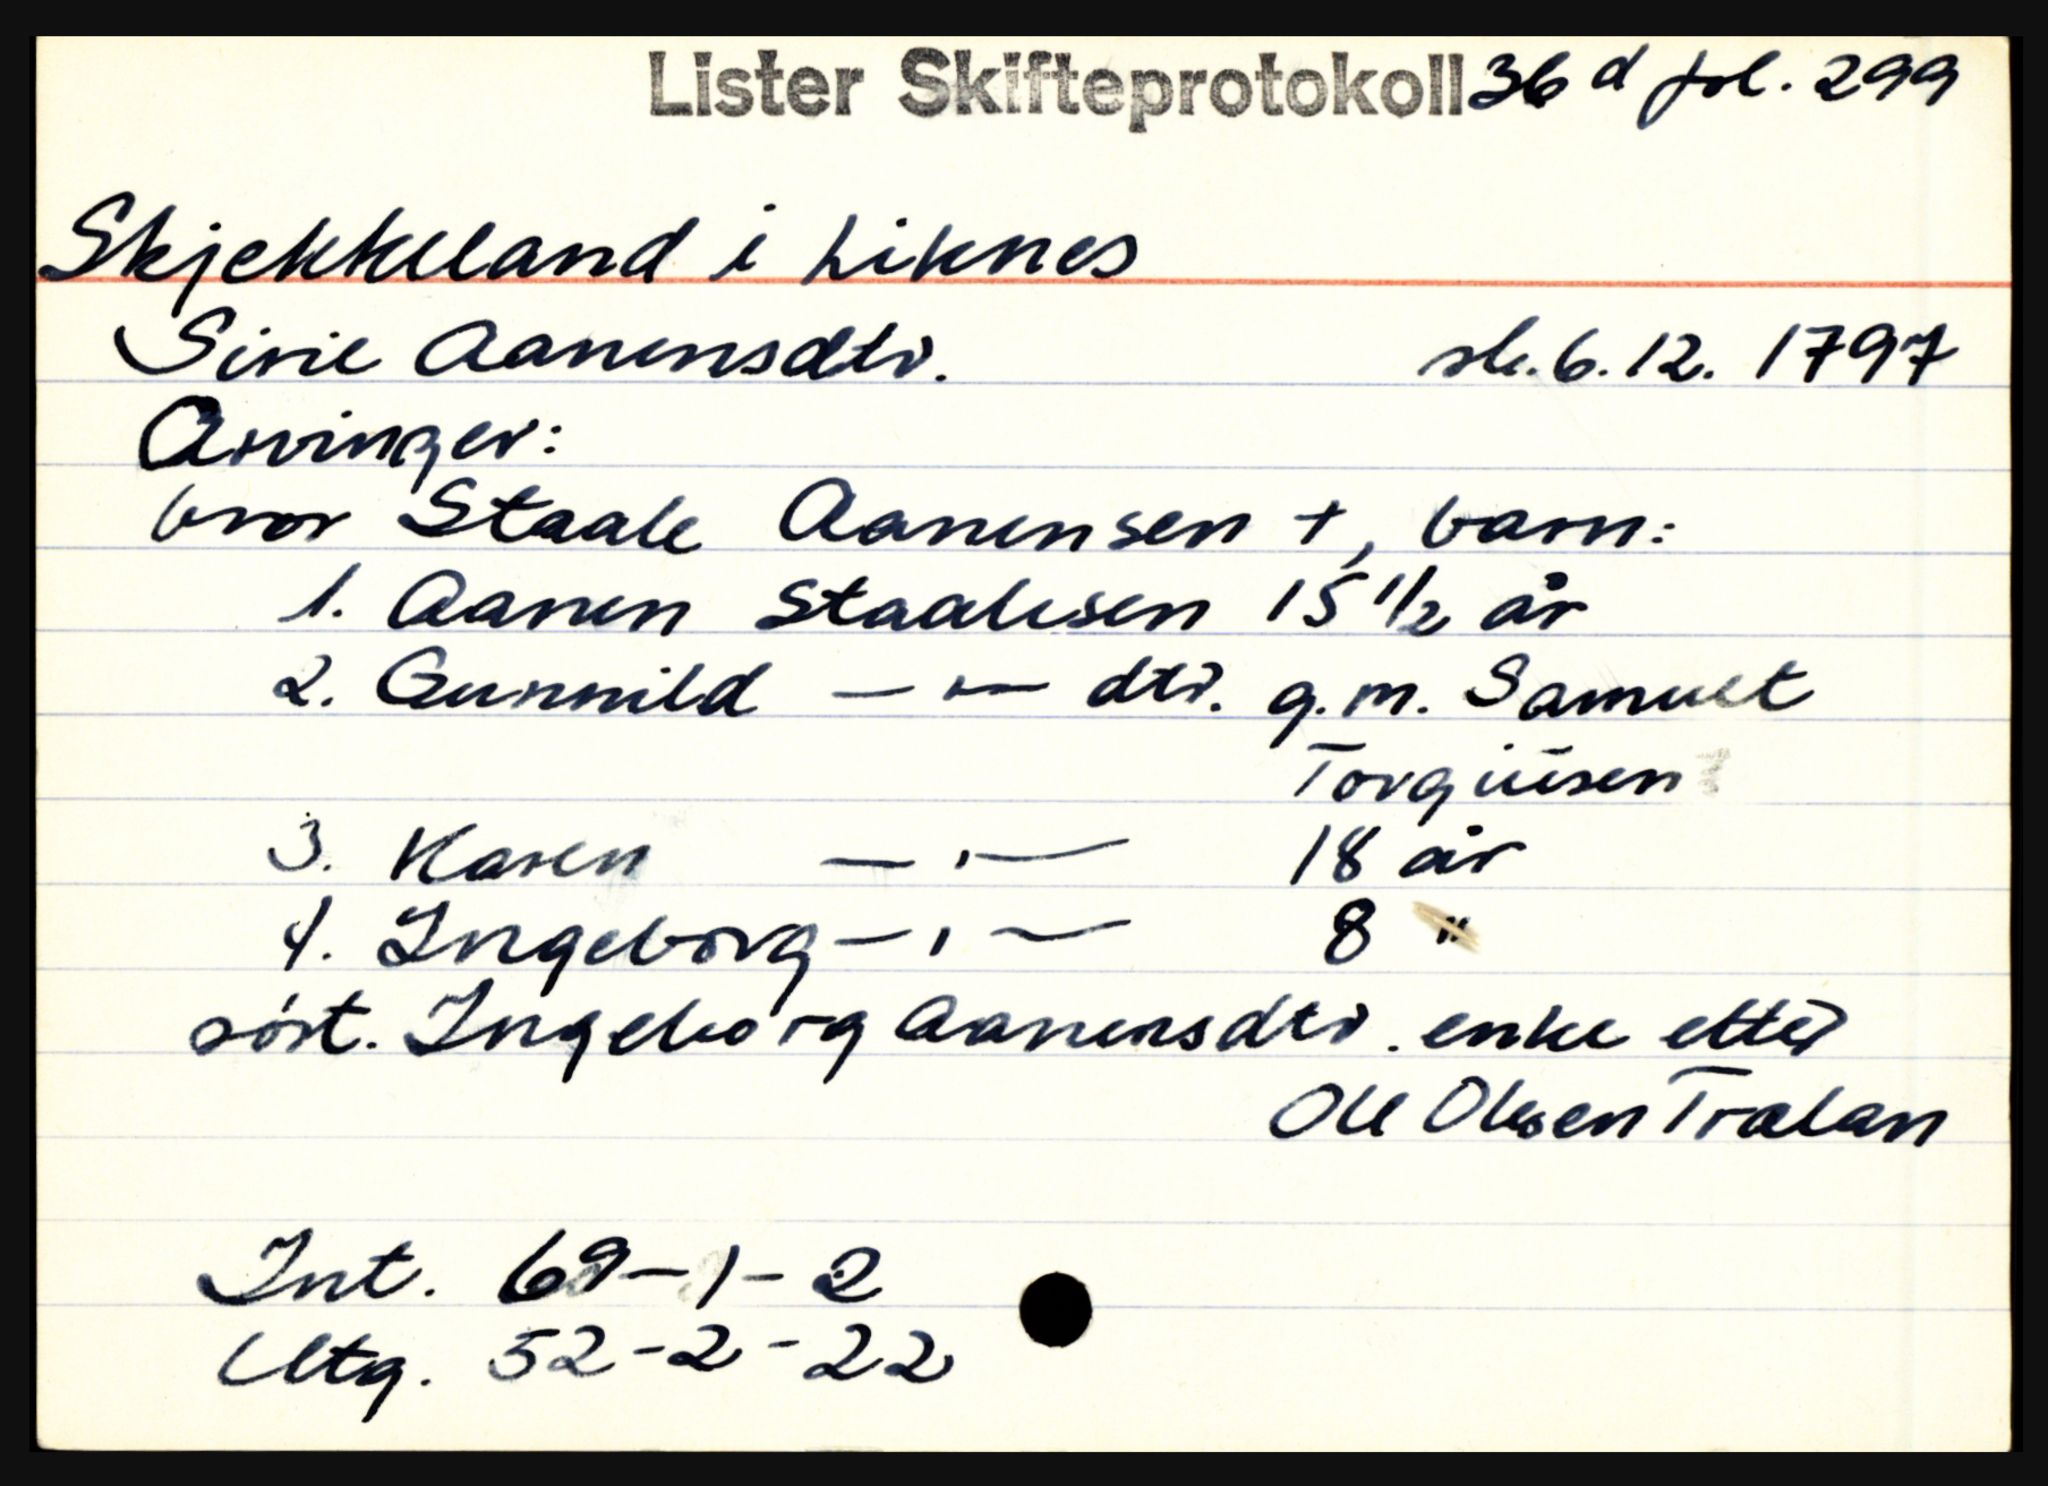 Lister Skifteprotokoll 36 d fol. 299
Skjekkeland i Liknes
Sirie Aanensdtr. sk. 6.12. 1797
Arvinger:
bror Staale Aanensen +, barn:
1. Aanen Staalesen 15 1/2 år
2. Gunnild — " — dtr. g.m. Samuel
Torgiüsen
3. Karen — " — 18 år
4. Ingeborg — " — 8 "
søst. Ingeborg Aanensdtr. enke etter
Ole Olesen Trælan
Int. 69-1-2
Utg. 52-2-22